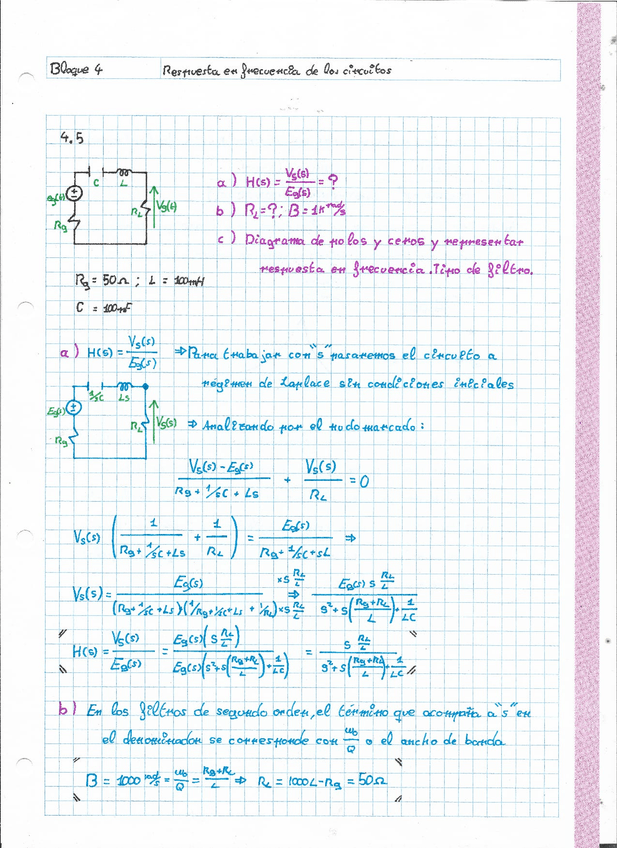 Bloque 4 Respuesta en frecuencia de los circuitos
4.5
C L
eg(t) Rg RL Vs(t)
a) H(s) = Vs(s)/Eg(s) = ?
b) RL = ?; B = 1K rad/s
c) Diagrama de polos y ceros y representar
respuesta en frecuencia. Tipo de filtro.
Rg = 50Ω ; L = 100mH
C = 100nF
a) H(s) = Vs(s)/Eg(s) ⇒ Para trabajar con "s" pasaremos el circuito a
régimen de Laplace sin condiciones iniciales
1/sC Ls
Eg(s) Rg RL Vs(s)
⇒ Analizando por el nudo marcado:
(Vs(s) - Eg(s))/(Rg + 1/sC + Ls) + Vs(s)/RL = 0
Vs(s) (1/(Rg + 1/sC + Ls) + 1/RL) = Eg(s)/(Rg + 1/sC + sL) ⇒
Vs(s) = Eg(s)/((Rg + 1/sC + Ls)(1/Rg + 1/sC + Ls + 1/RL)) ×s RL/L ×s RL/L ⇒ Eg(s) s RL/L/(s² + s((Rg+RL)/L) + 1/LC)
H(s) = Vs(s)/Eg(s) = Eg(s)(s RL/L)/(Eg(s)(s² + s((Rg+RL)/L) + 1/LC)) = s RL/L/(s² + s((Rg+RL)/L) + 1/LC)
b) En los filtros de segundo orden, el término que acompaña a "s" en
el denominador se corresponde con ω₀/Q o el ancho de banda
B = 1000 rad/s = ω₀/Q = (Rg+RL)/L ⇒ RL = 1000L - Rg = 50Ω